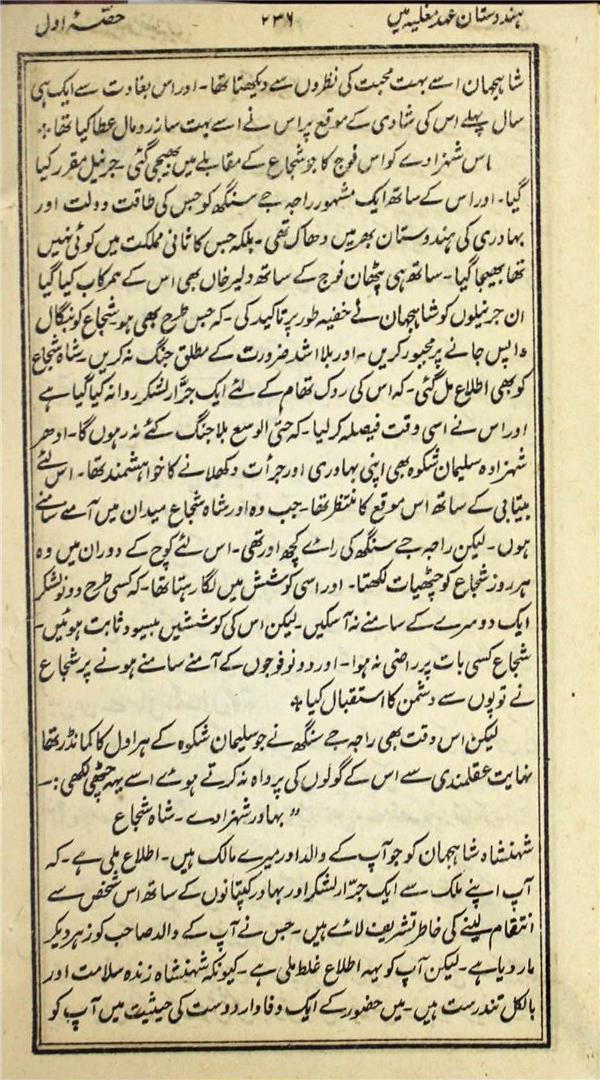 ہندوستان عہد مغلیہ میں ۲۳۶ حصۂ اول
شاہجہان اسے بہت محبت کی نظروں سے دیکھتا تھا۔ اور اس بغاوت سے ایک ہی
سال پہلے اس کی شادی کے موقع پر اس نے اسے بہت سا زر و مال عطا کیا تھا ؞
اس شہزادے کو اس فوج کا جو شجاع کے مقابلے میں بھیجی گئی۔ جرنیل مقرر کیا
گیا۔ اور اس کے ساتھ ایک مشہور راجہ جے سنگھ کو جس کی طاقت و دولت اور
بہادری کی ہندوستان بھر میں دھاک تھی۔ بلکہ جس کا ثانی مملکت میں کوئی نہیں
تھا بھیجا گیا۔ ساتھ ہی پٹھان فوج کے ساتھ دلیر خاں بھی اس کے ہمرکاب کیا گیا
ان جرنیلوں کو شاہجہان نے خفیہ طور پر تاکید کی۔ کہ جس طرح بھی ہو شجاع کو بنگال
واپس جانے پر مجبور کریں۔ اور بلا اشد ضرورت کے مطلق جنگ نہ کریں۔ شاہ شجاع
کو بھی اطلاع مل گئی۔ کہ اس کی روک تھام کے لئے ایک جرّار لشکر روانہ کیا گیا ہے
اور اس نے اسی وقت فیصلہ کر لیا۔ کہ حتی الوسع بلا جنگ کئے نہ رہوں گا۔ ادھر
شہزادہ سلیمان شکوہ بھی اپنی بہادری اور جرأت دکھلانے کا خواہشمند تھا۔ اس لئے
بیتابی کے ساتھ اس موقع کا منتظر تھا۔ جب وہ اور شاہ شجاع میدان میں آمنے سامنے
ہوں۔ لیکن راجہ جے سنگھ کی رائے کچھ اور تھی۔ اس لئے کوچ کے دوران میں وہ
ہر روز شجاع کو چٹھیات لکھتا۔ اور اسی کوشش میں لگا رہتا تھا۔ کہ کسی طرح دونو لشکر
ایک دوسرے کے سامنے نہ آسکیں۔ لیکن اس کی کوششیں بیسود ثابت ہوئیں۔
شجاع کسی بات پر راضی نہ ہوا۔ اور دونو فوجوں کے آمنے سامنے ہونے پر شجاع
نے توپوں سے دشمن کا استقبال کیا ؞
لیکن اس وقت بھی راجہ جے سنگھ نے جو سلیمان شکوہ کے ہراول کا کمانڈر تھا
نہایت عقلمندی سے اس کے گولوں کی پرواہ نہ کرتے ہوئے اسے یہہ چٹھی لکھی :۔
”بہادر شہزادے۔ شاہ شجاع
شہنشاہ شاہجہان کو جو آپ کے والد اور میرے مالک ہیں۔ اطلاع ملی ہے۔ کہ
آپ اپنے ملک سے ایک جرّار لشکر اور بہادر کپتانوں کے ساتھ اس شخص سے
انتقام لینے کی خاطر تشریف لائے ہیں۔ جس نے آپ کے والد صاحب کو زہر دیکر
مار دیا ہے۔ لیکن آپ کو یہہ اطلاع غلط ملی ہے۔ کیونکہ شہنشاہ زندہ سلامت اور
بالکل تندرست ہیں۔ میں حضور کے ایک وفادار دوست کی حیثیت میں آپ کو